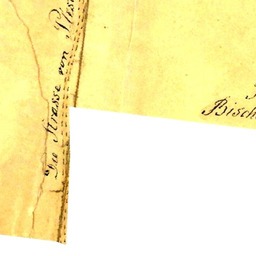 Die Strasse von
Bisch